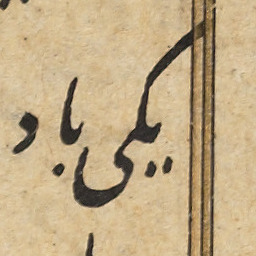 یکی باد